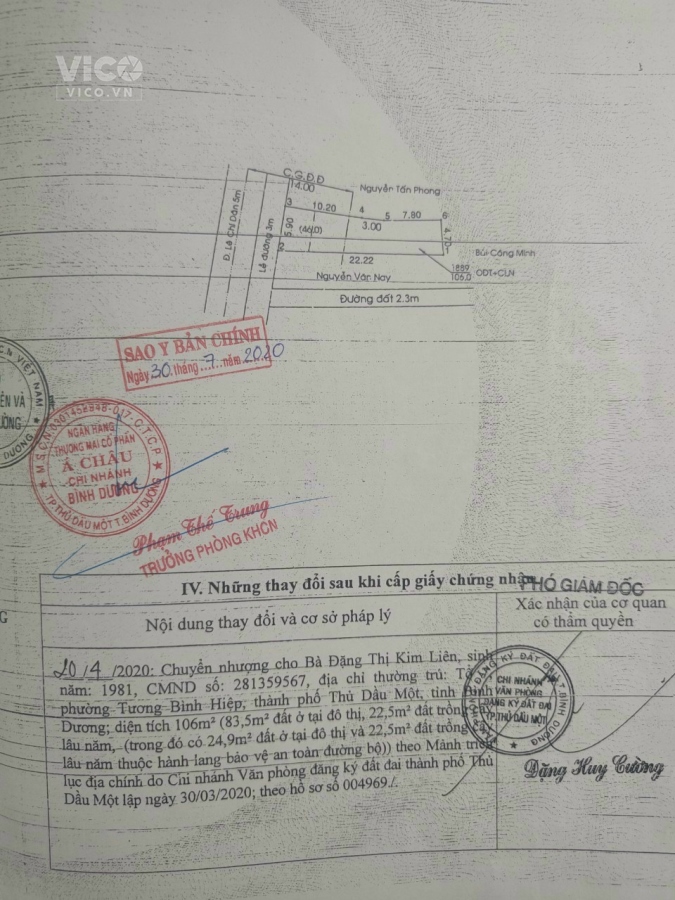 VICO
VICO.VN
C.G.Đ.Đ
4.00
Nguyễn Tấn Phong
Đ. Lê Chí Dân 5m
Lề đường 3m
3
10.20
4
5
7.80
6
5.90
(46.0)
3.00
4.72
2
1
22.22
Bùi Công Minh
1889
106.0
ODT+CLN
Nguyễn Văn Nay
Đường đất 2.3m
SAO Y BẢN CHÍNH
Ngày 30 tháng 7 năm 2020
VIỆT NAM
NGÂN HÀNG
THƯƠNG MẠI CỔ PHẦN
Á CHÂU
CHI NHÁNH
BÌNH DƯƠNG
TP.THỦ DẦU MỘT T.BÌNH DƯƠNG
Phạm Thế Trung
TRƯỞNG PHÒNG KHCN
IV. Những thay đổi sau khi cấp giấy chứng nhận
PHÓ GIÁM ĐỐC
Nội dung thay đổi và cơ sở pháp lý
Xác nhận của cơ quan
có thẩm quyền
20/4/2020: Chuyển nhượng cho Bà Đặng Thị Kim Liên, sinh
năm: 1981, CMND số: 281359567, địa chỉ thường trú: Tổ
phường Tương Bình Hiệp, thành phố Thủ Dầu Một, tỉnh Bình
Dương; diện tích 106m² (83,5m² đất ở tại đô thị, 22,5m² đất trồng cây
lâu năm, (trong đó có 24,9m² đất ở tại đô thị và 22,5m² đất trồng cây
lâu năm thuộc hành lang bảo vệ an toàn đường bộ)) theo Mảnh trích
lục địa chính do Chi nhánh Văn phòng đăng ký đất đai thành phố Thủ
Dầu Một lập ngày 30/03/2020; theo hồ sơ số 004969./.
CHI NHÁNH
VĂN PHÒNG
ĐĂNG KÝ ĐẤT ĐAI
TP.THỦ DẦU MỘT
Đặng Huy Cường